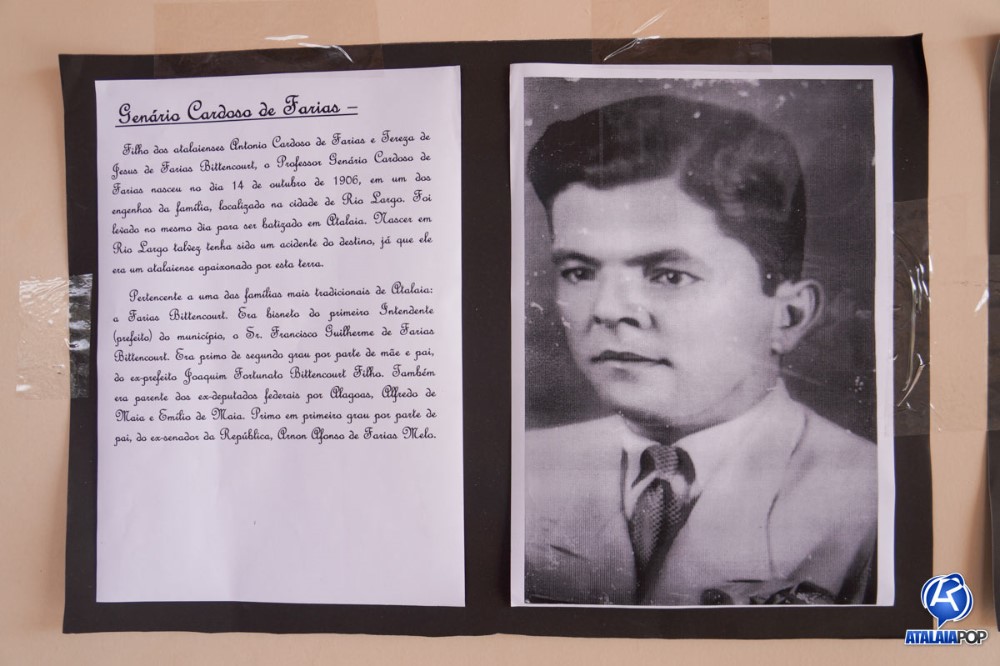 Genário Cardoso de Farias –
Filho dos atalaienses Antonio Cardoso de Farias e Tereza de
Jesus de Farias Bittencourt, o Professor Genário Cardoso de
Farias nasceu no dia 14 de outubro de 1906, em um dos
engenhos da família, localizado na cidade de Rio Largo. Foi
levado no mesmo dia para ser batizado em Atalaia. Nascer em
Rio Largo talvez tenha sido um acidente do destino, já que ele
era um atalaiense apaixonado por esta terra.
Pertencente a uma das famílias mais tradicionais de Atalaia:
a Farias Bittencourt. Era bisneto do primeiro Intendente
(prefeito) do município, o Sr. Francisco Guilherme de Farias
Bittencourt. Era primo de segundo grau por parte de mãe e pai,
do ex-prefeito Joaquim Fortunato Bittencourt Filho. Também
era parente dos ex-deputados federais por Alagoas, Alfredo de
Maia e Emílio de Maia. Primo em primeiro grau por parte de
pai, do ex-senador da República, Arnon Afonso de Farias Melo.
ATALAIAPOP